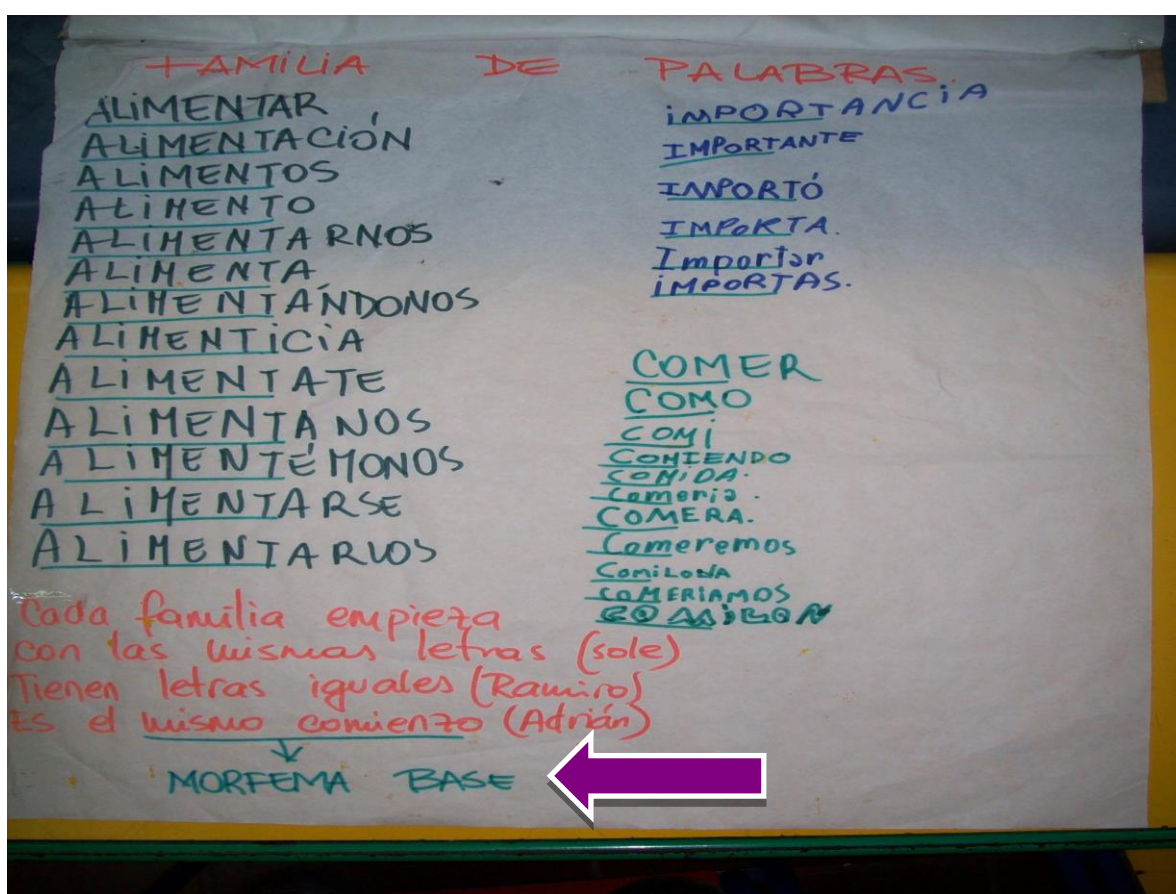 FAMILIA DE PALABRAS.
ALIMENTAR
ALIMENTACIÓN
ALIMENTOS
ALIMENTO
ALIMENTARNOS
ALIMENTA
ALIMENTÁNDONOS
ALIMENTICIA
ALIMENTATE
ALIMENTANOS
ALIMENTÉMONOS
ALIMENTARSE
ALIMENTARLOS
IMPORTANCIA
IMPORTANTE
IMPORTÓ
IMPORTA.
Importar
IMPORTAS.
COMER
COMO
COMI
COMIENDO
COMIDA.
Comeria.
COMERA.
Comeremos
COMILONA
COMERIAMOS
COMILON
Cada familia empieza
con las mismas letras (sole)
Tienen letras iguales (Ramiro)
Es el mismo comienzo (Adrián)
MORFEMA BASE